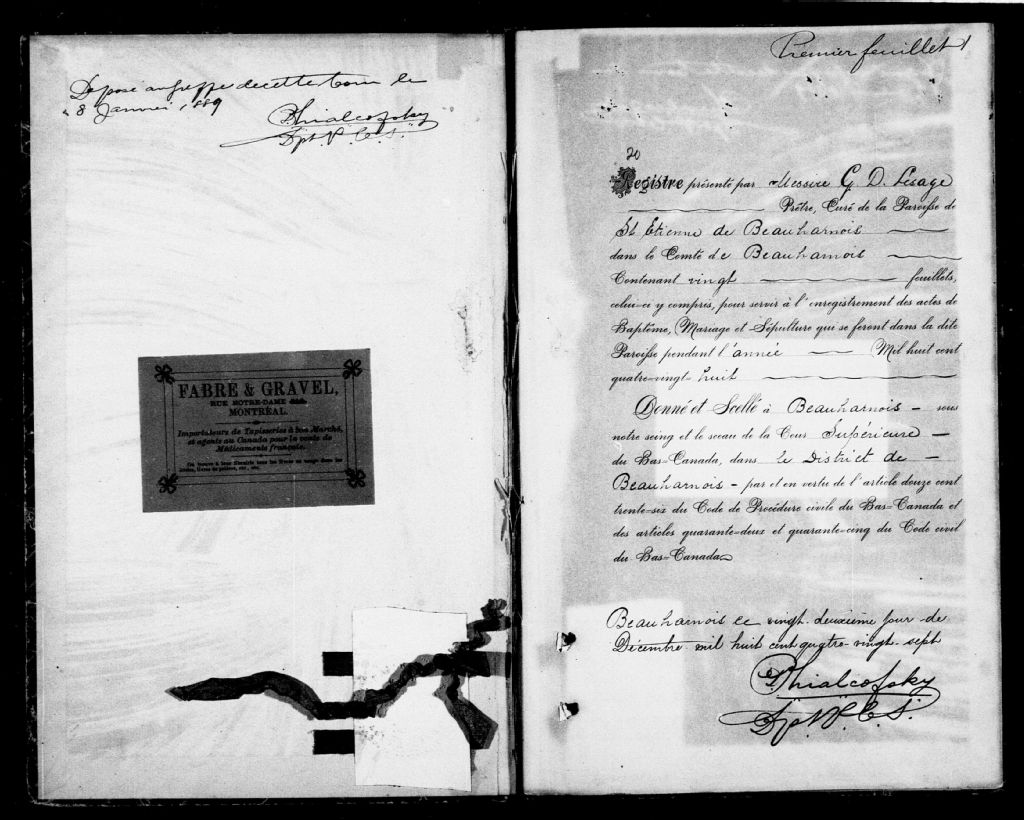 Déposé au greffe de cette Cour le
8 Janvier 1889
Philalcofsky
Dpt. P. C. S.
FABRE & GRAVEL,
RUE NOTRE-DAME
MONTRÉAL.
Importateurs de Tapisseries à bon Marché,
et agents au Canada pour la vente de
Médicaments français.
On trouve à leur librairie tous les livres en usage dans les
écoles, livres de prières, etc., etc.
Premier feuillet 1
20
Registre présenté par Messire G. D. Lesage
Prêtre, Curé de la Paroisse de
St Etienne de Beauharnois
dans le Comté de Beauharnois
Contenant vingt feuillets,
celui-ci y compris, pour servir à l'enregistrement des actes de
Baptême, Mariage et Sépulture qui se feront dans la dite
Paroisse pendant l'année Mil huit cent
quatre-vingt-huit
Donné et Scellé à Beauharnois - sous
notre seing et le sceau de la Cour Supérieure -
du Bas=Canada, dans le District de -
Beauharnois - par et en vertu de l'article douze cent
trente=six du Code de Procédure civile du Bas=Canada et
des articles quarante=deux et quarante=cinq du Code civil
du Bas=Canada
Beauharnois ce vingt-deuxième jour de
Décembre mil huit cent quatre-vingt-sept
Philalcofsky
Dpt. P. C. S.